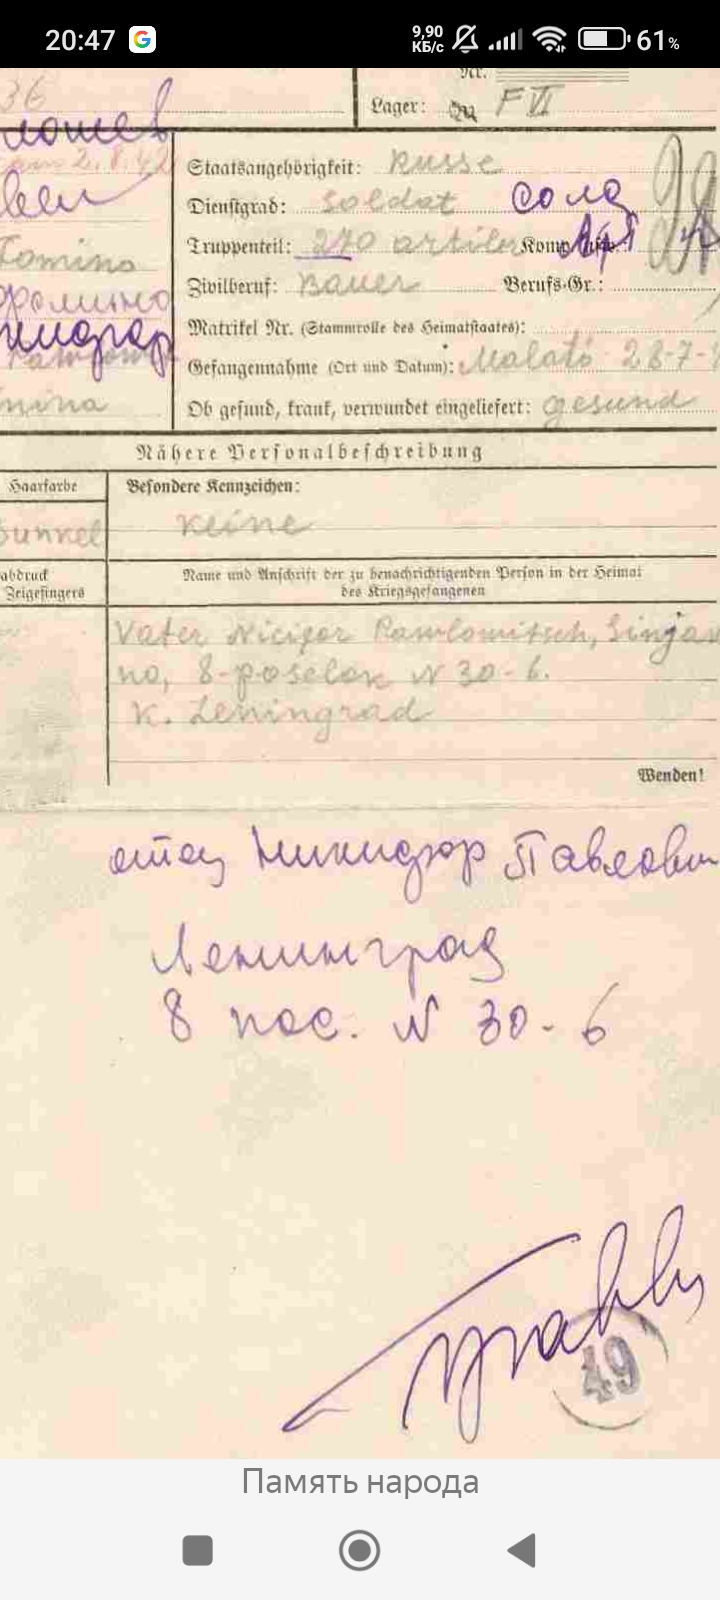 20:47 9,90 КБ/с 61%
36
Nr.
Lager: F VI
лошев
2.8.42
Staatsangehörigkeit: Russe
Dienstgrad: Soldat солд
Truppenteil: 270 Komp. usw.: 
Fomino
Zivilberuf: Bauer Berufs-Gr.:
Фомино
Matrikel Nr. (Stammrolle des Heimatstaates):
Gefangennahme (Ort und Datum): 28-7-
nina
Ob gesund, krank, verwundet eingeliefert: gesund
Nähere Personalbeschreibung
Haarfarbe Besondere Kennzeichen:
Dunkel keine
abdruck Name und Anschrift der zu benachrichtigenden Person in der Heimat
Zeigefingers des Kriegsgefangenen
Vater Nicifor Pawlowitsch, Sinjaw
no, 8-poselok N 30-6.
K. Leningrad
Wenden!
отец Никифор Павлович
Ленинград
8 пос. N 30-6
49
Память народа